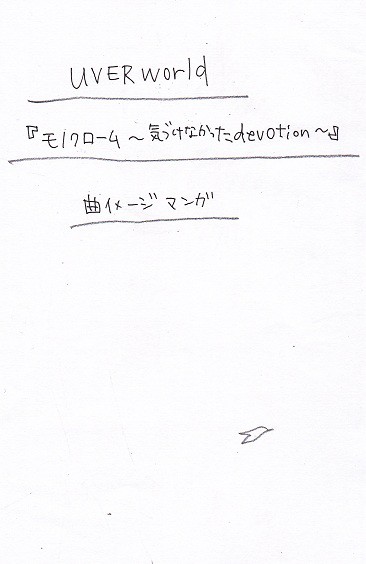 UVERworld
『モノクローム～気づけなかったdevotion～』
曲イメージマンガ